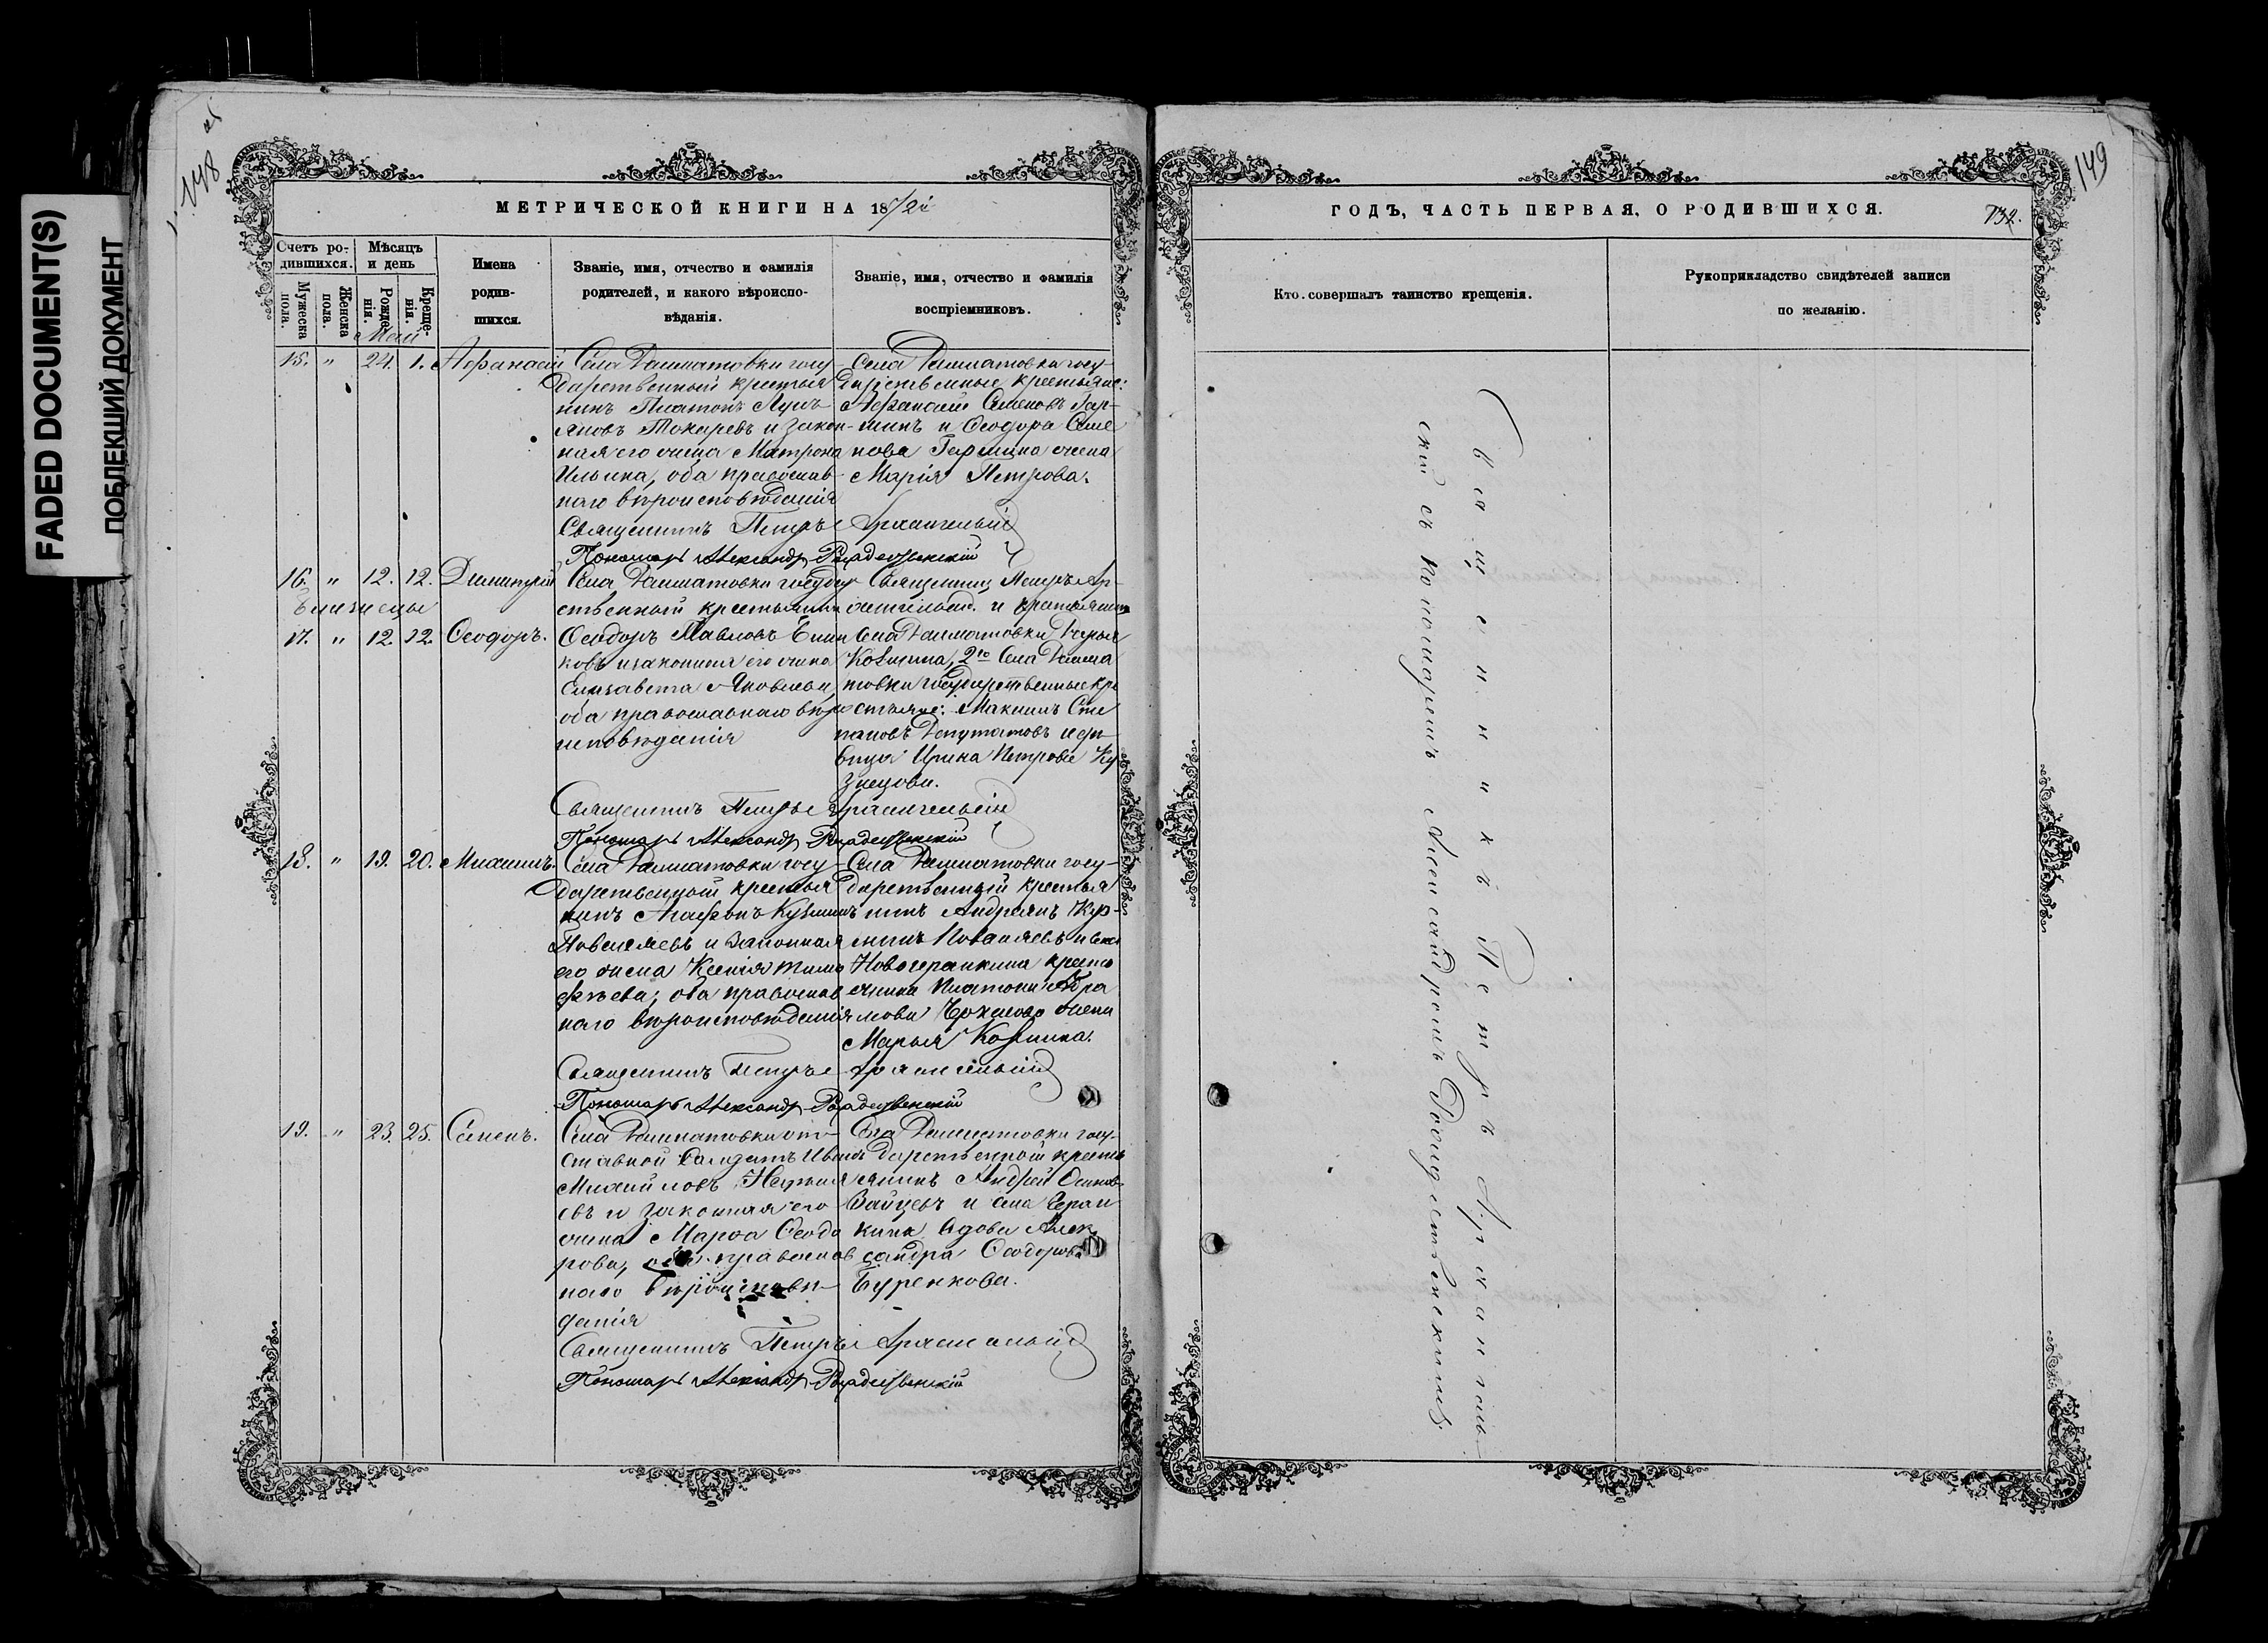 FADED DOCUMENT(S)
ПОБЛЕКШИЙ ДОКУМЕНТ
148
149
МЕТРИЧЕСКОЙ КНИГИ НА 187
Счетъ ро-
дившихся.
Мужеска
пола.
Женска
пола.
Мѣсяцъ
и день
Рожде-
нія.
Креще-
нія.
Имена
родив-
шихся.
Званіе, имя, отчество и фамилія
родителей, и какого вѣроиспо-
вѣданія.
Званіе, имя, отчество и фамилія
воспріемниковъ.
15. " 24. 1. Афанасій
Села государственный крестья
нинъ Платонъ Лукь
яновъ Токаревъ и закон-
ная его жена Матрона
Ильина, оба православ-
наго вѣроисповѣданія
Села госу-
дарственные крестьяне:
Афанасій Семеновъ Гар-
шинъ и Ѳеодора Семе
нова Гаршина жена
Марія Петрова.
Священникъ Петръ Архангельскій
Пономарь Александр Рождественскій
16. " 12. 12. Димитрій
Близнецы
17. " 12. 12. Ѳеодоръ.
Села государ
ственный крестьянинъ
Ѳеодоръ Павловъ
ковъ и законная его жена
Елизавета Яковлева,
оба православнаго вѣро
исповѣданія
Священникъ Петръ Ар-
хангельскій. и крестьянка
села Дарья
Козьмина, 2го Села
государственные кре
стьяне: Максимъ Сте
пановъ Депутатовъ и дѣ-
вица Ирина Петрова Ку
знецова.
Священникъ Петръ Архангельскій
Пономарь Александр Рождественскій
18. " 19. 20. Михаилъ.
Села госу-
дарственный крестья
нинъ Агафонъ Кузьминъ
и законная
его жена Ксенія Тимо
фѣева, оба православ
наго вѣроисповѣданія
Села госу-
дарственный крестья
нинъ Андреянъ Кузь-
минъ и села
Новочеранкина кресть
янина Платона Абра
мова жена
Марья Козьмина.
Священникъ Петръ Архангельскій
Пономарь Александр Рождественскій
19. " 23. 25. Семенъ.
Села от-
ставной солдатъ Иванъ
Михайловъ
евъ и законная его
жена Марѳа Ѳеодо
рова, оба православ
наго вѣроисповѣ-
данія
Села госу-
дарственный кресть
янинъ Андрей Осиповъ
Зайцевъ и села Черан
кина вдова Алек
сандра Ѳеодорова
Буренкова.
Священникъ Петръ Архангельскій
Пономарь Александр Рождественскій
ГОДЪ, ЧАСТЬ ПЕРВАЯ, О РОДИВШИХСЯ.
734.
Кто совершалъ таинство крещенія.
Рукоприкладство свидѣтелей записи
по желанію.
Священникъ Петръ Архангель-
скій съ пономаремъ Александромъ Рождественскимъ